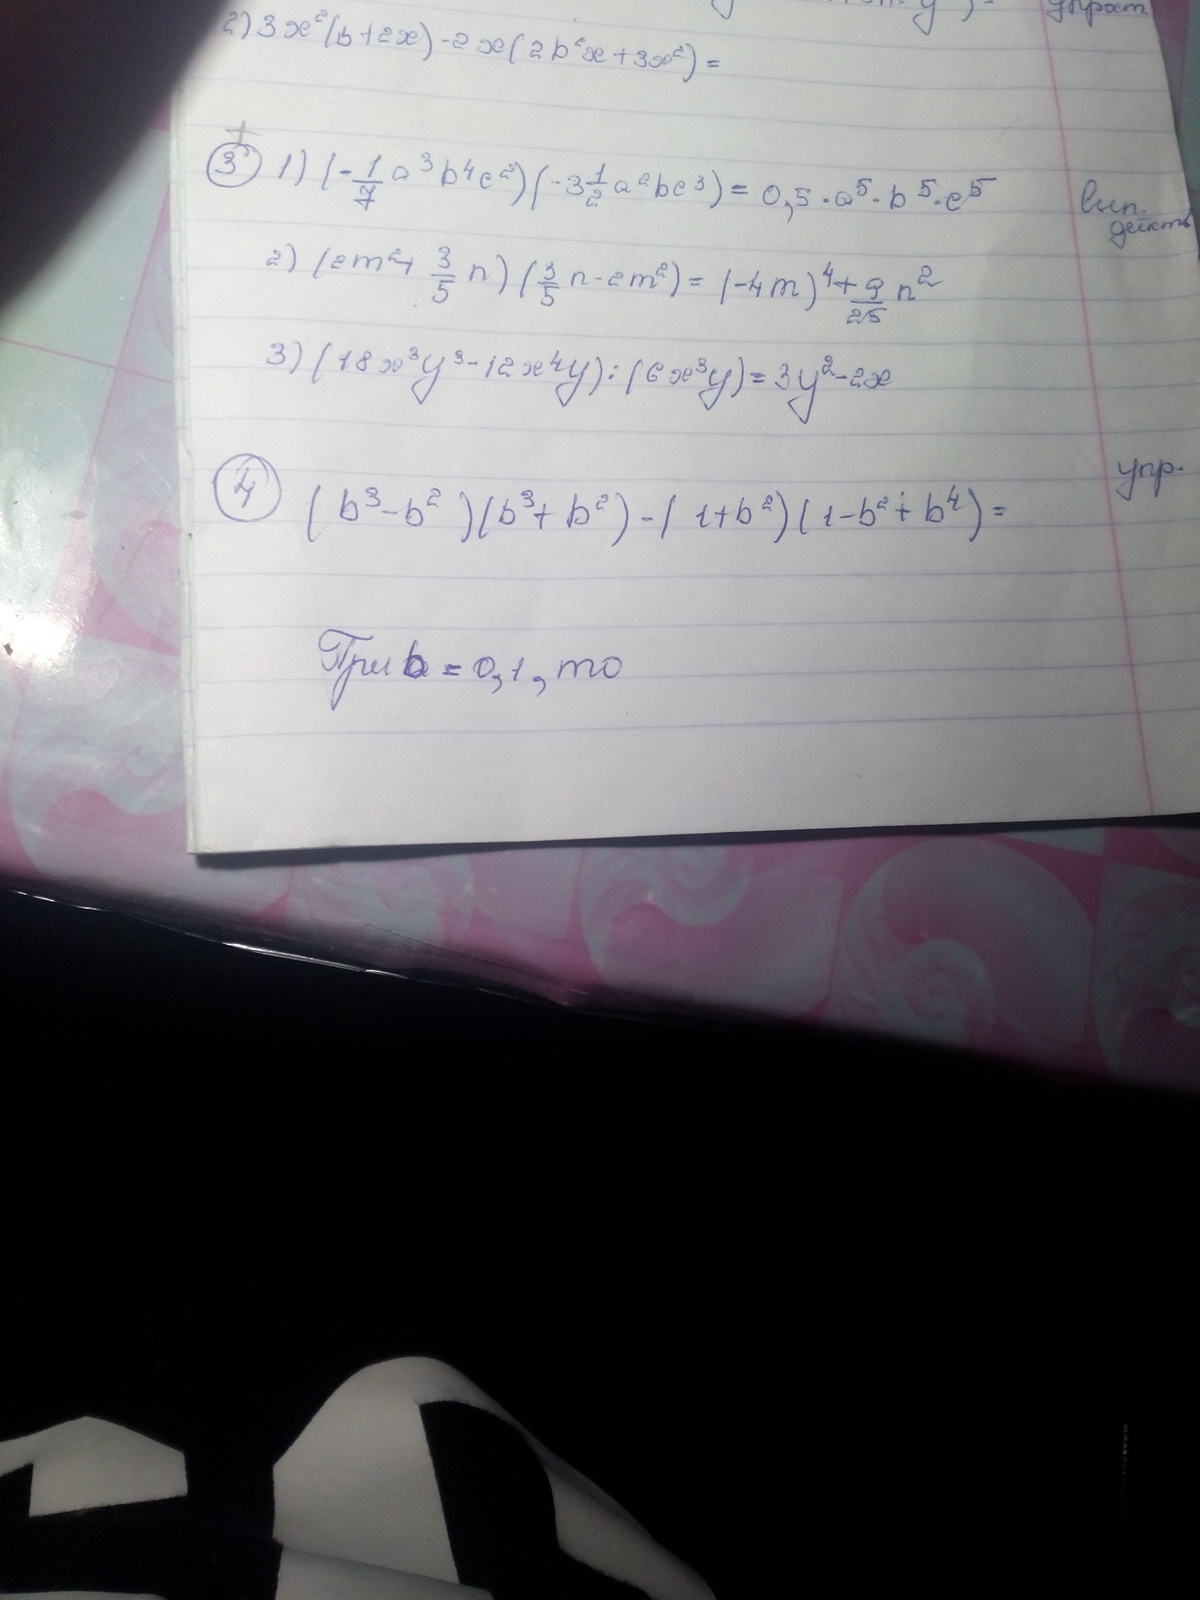 упрост
2) 3x²(b+2x)-2x(2b²x+3x²)=
+
③ 1) (-1/7 a³b⁴c²)(-3 1/2 a²bc³)= 0,5·a⁵·b⁵·c⁵ вып. действ
2) (2m²+ 3/5 n)(3/5 n-2m²)= (-4m)⁴+ 9/25 n²
3) (18x³y³-12x⁴y):(6x³y)= 3y²-2x
④ упр.
(b³-b²)(b³+b²)-(1+b²)(1-b²+b⁴)=
При b = 0,1, то